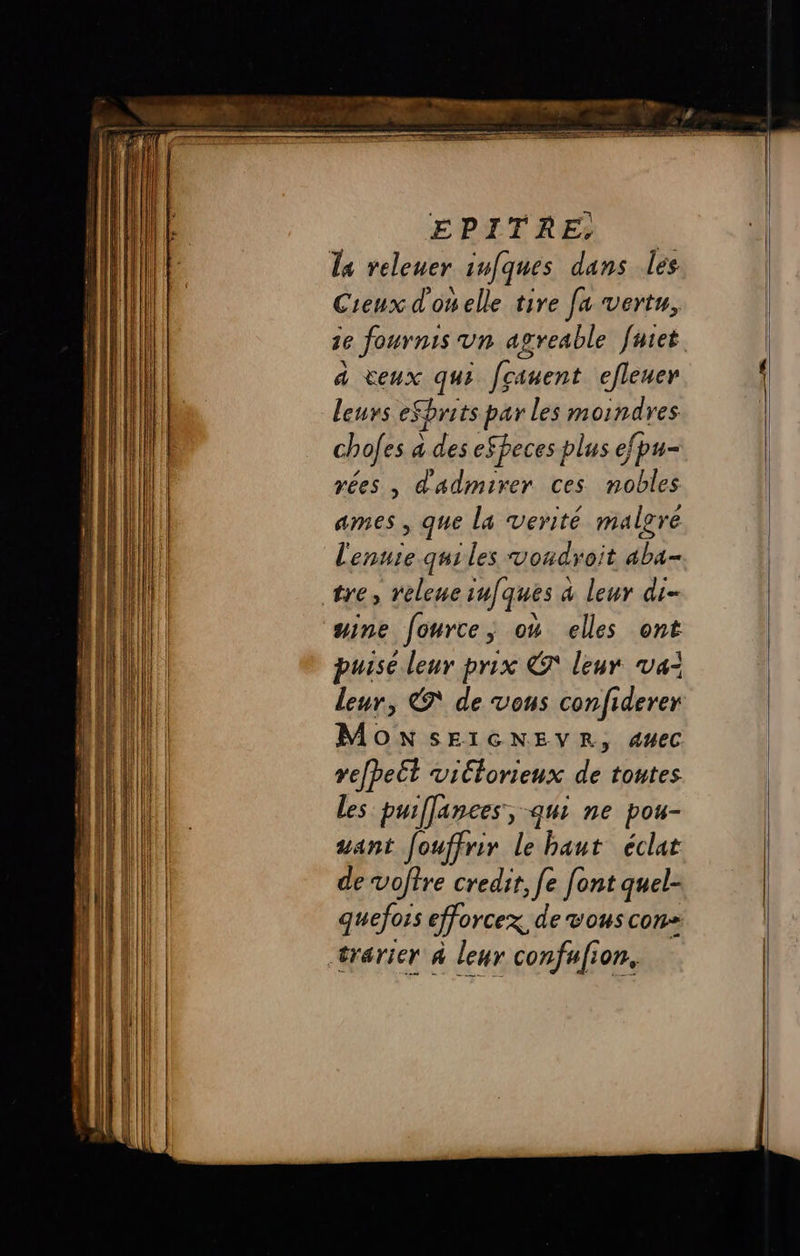 EPITRE,
la releuer iuſques dans les
Cieux d'où elle tire ſa vertu,
ie fournis vn agreable ſuiet
à ceux qui ſçauent eſleuer
leurs eſprits par les moindres
choſes à des eſpeces plus eſpu-
rées, d'admirer ces nobles
ames, que la verité malgré
l'enuie qui les voudroit aba-
tre, releue iuſques à leur di-
uine ſource, où elles ont
puisé leur prix & leur va-
leur, & de vous conſiderer
MONSEIGNEVR, auec
reſpect victorieux de toutes
les puiſſances, qui ne pou-
uant ſouffrir le haut éclat
de voſtre credit, ſe ſont quel-
quefois efforcez de vous con-
trarier à leur confuſion,